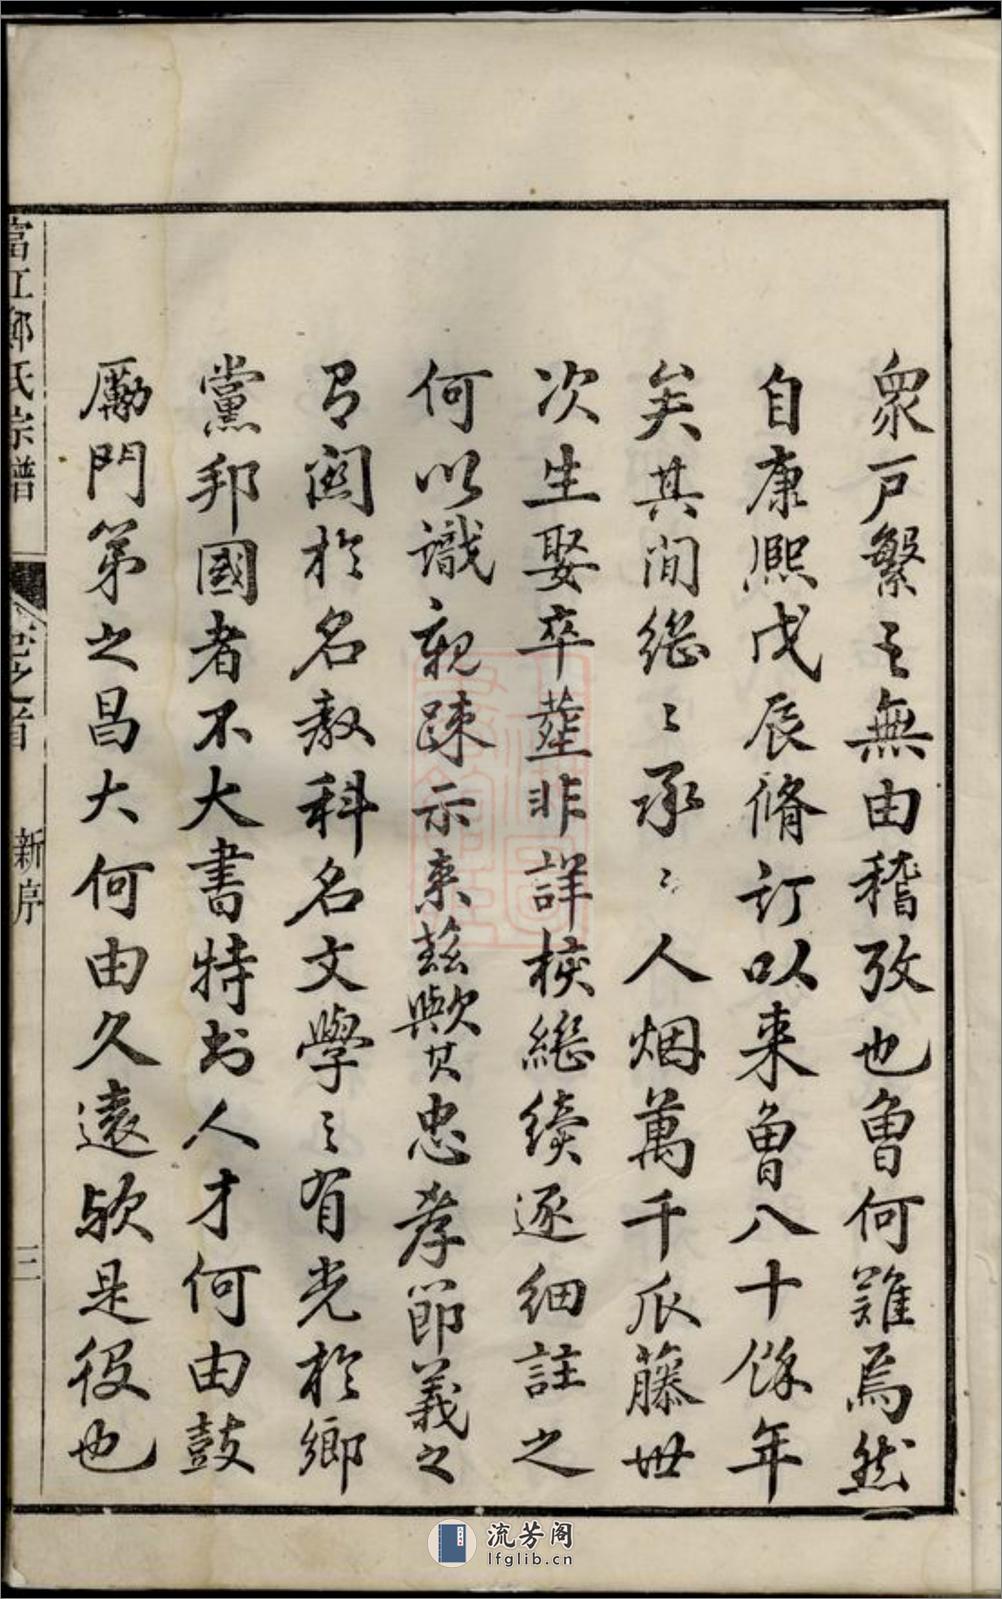 眾戶繁之無由稽攷也曾何難焉然
自康熙戊辰脩訂以來曾八十餘年
矣其間繼〻承〻人烟萬千瓜藤世
次生娶卒塟非詳核繼續逐細註之
何以識親疎示來茲歟其忠孝節義之
有関於名教科名文學之有光於鄉
黨邦國者不大書特書人才何由鼓
勵門第之昌大何由久遠歟是役也
富江鄭氏宗譜
卷之首
新序
三
流芳阁
lfglib.cn